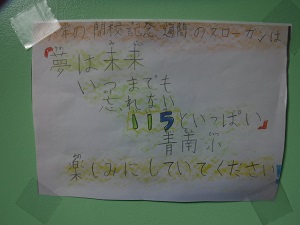 今年の開校記念週間のスローガンは
『夢は未来
いつまでも
忘れない
115といっぱい
青南小』
楽しみにしていてください